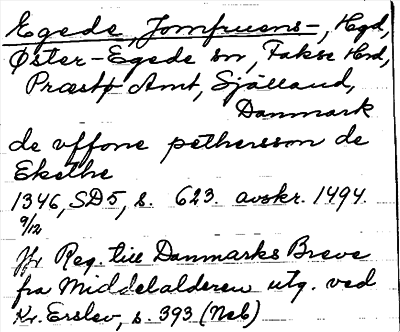 Egede, Jomfruens-, Hgd,
Øster-Egede sn, Fakse Hrd,
Præstø Amt, Själland,
Danmark
de uffone pethersson de
Ekethe
1346, SD5, s. 623. avskr. 1494.
9/12
Jfr Reg. till Danmarks Breve
fra Middelalderen utg. ved
Kr. Erslev, s. 393 (Neb)